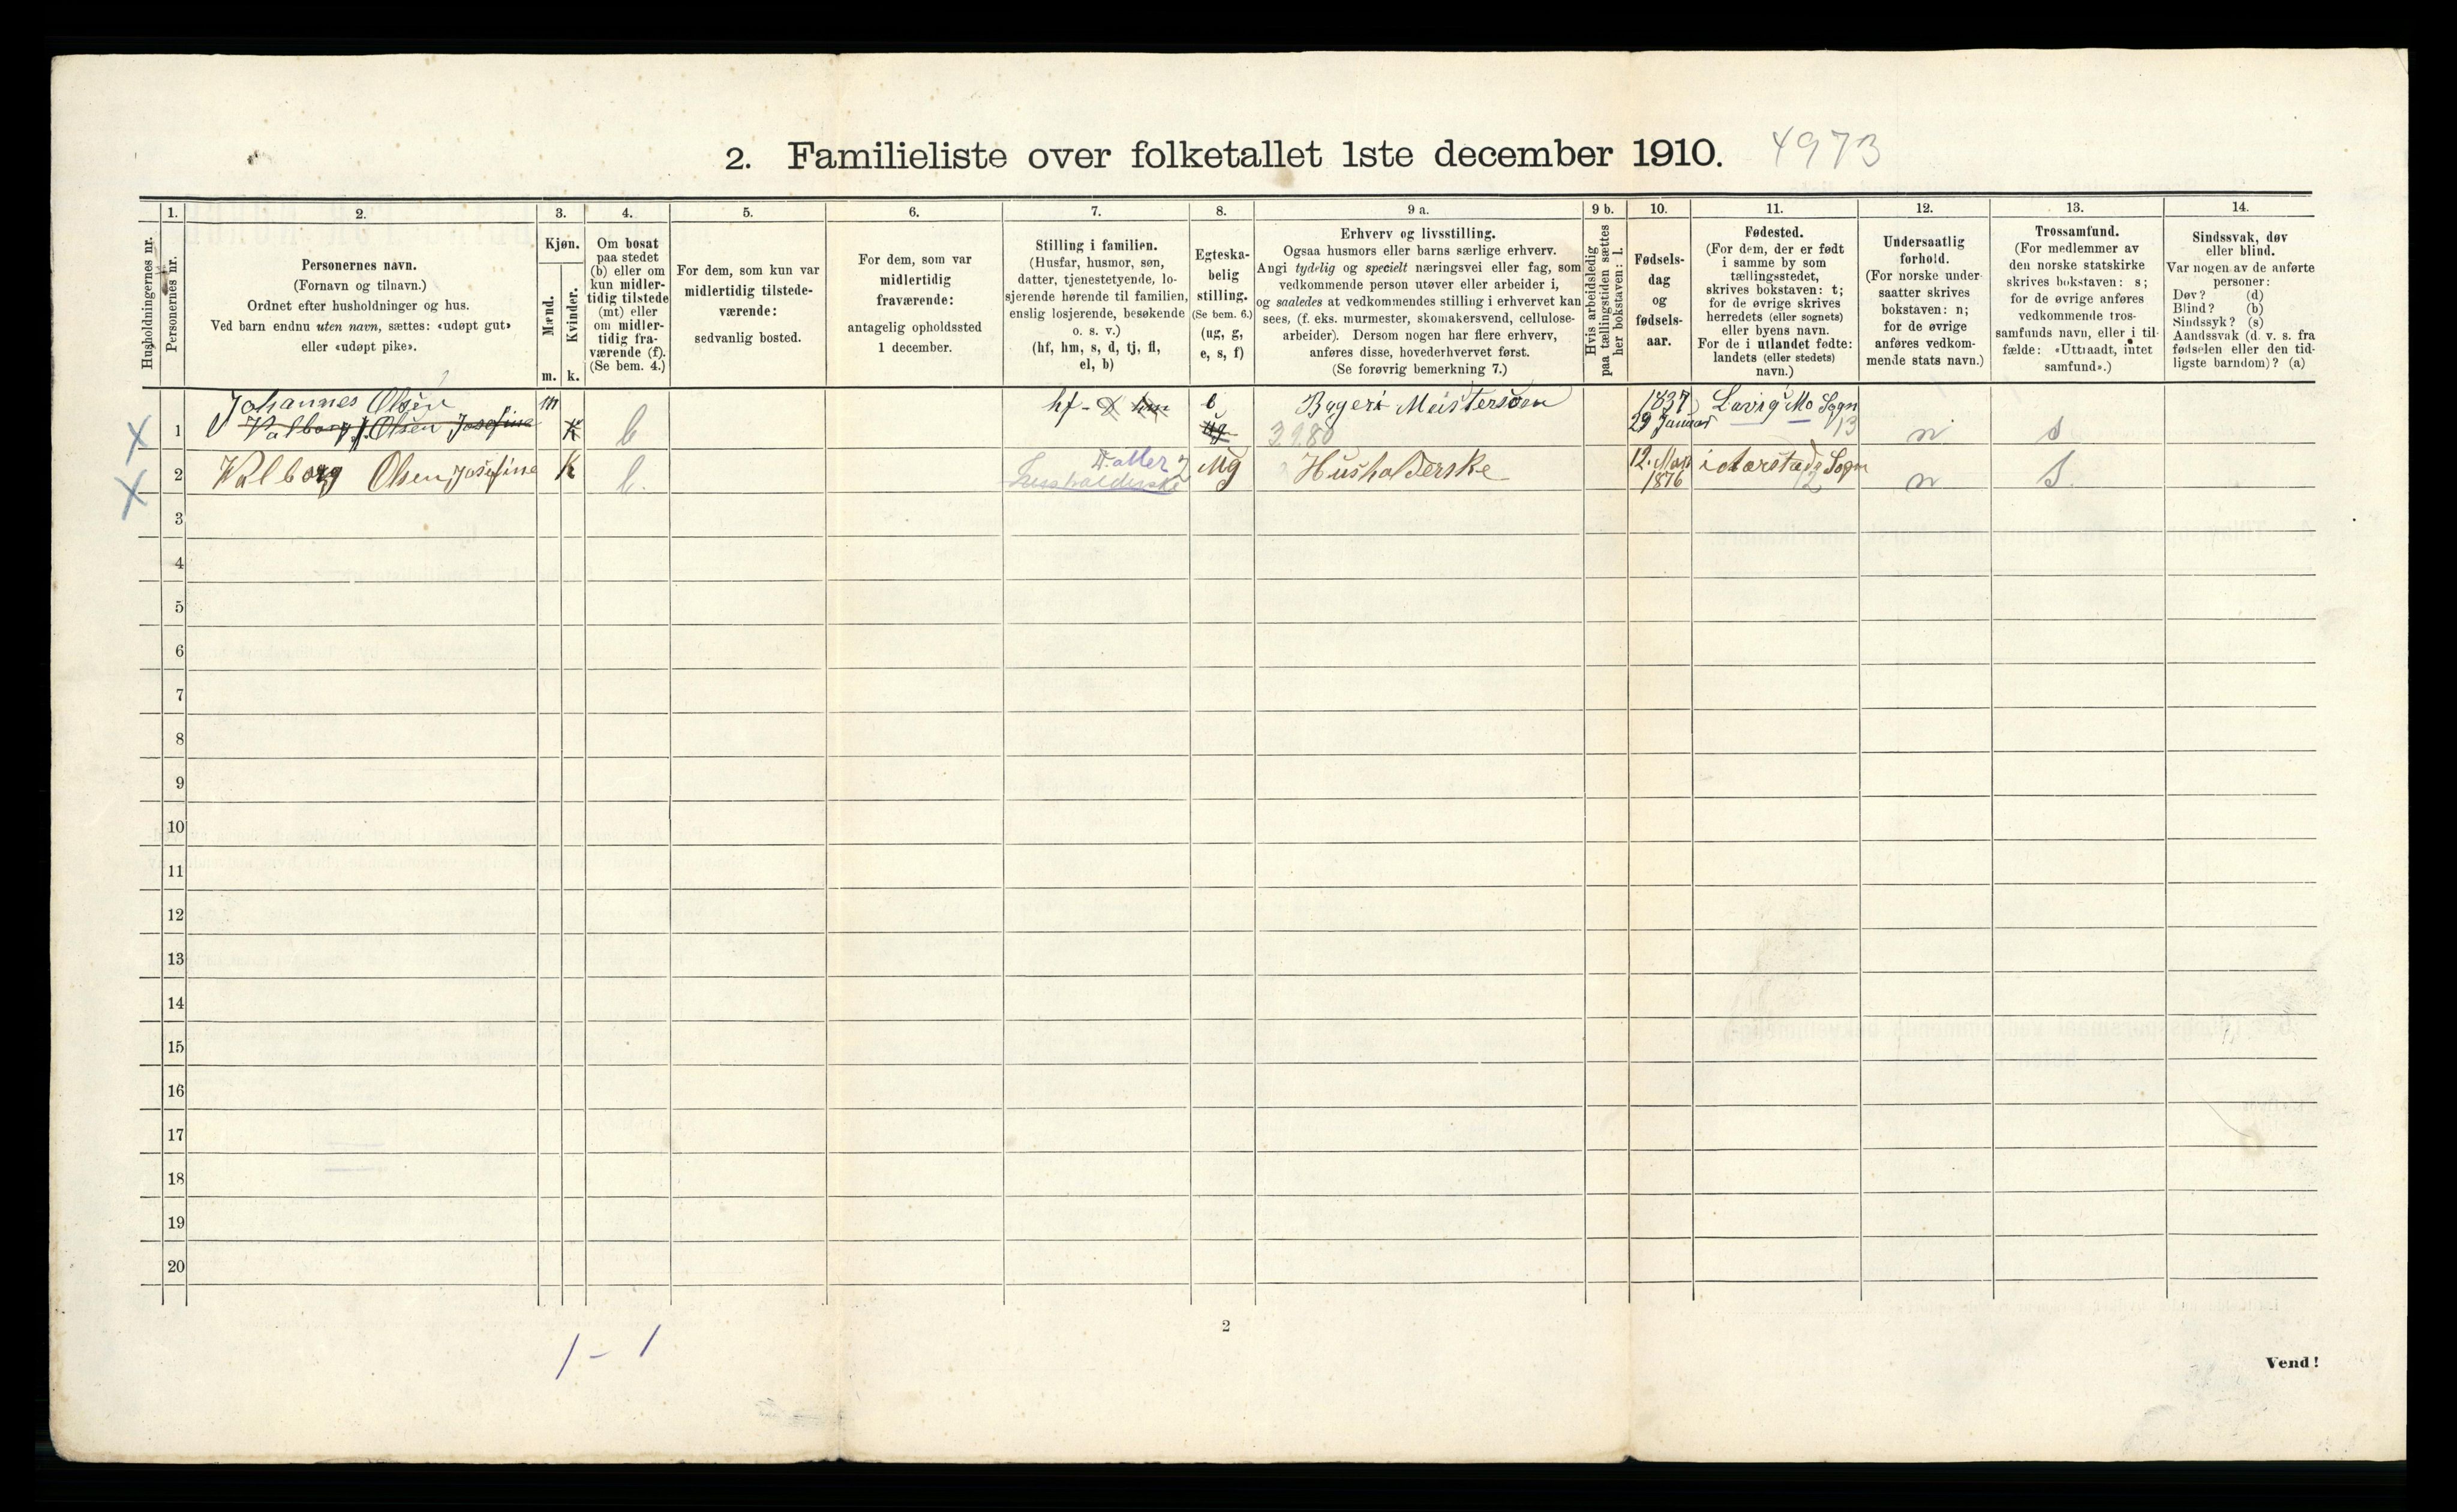 2. Familieliste over folketallet 1ste december 1910. 4973
Husholdningernes nr.
1.
Personernes nr.
2.
Personernes navn.
(Fornavn og tilnavn.)
Ordnet efter husholdninger og hus.
Ved barn endnu uten navn, sættes: «udøpt gut»
eller «udøpt pike».
3.
Kjøn.
Mænd.
Kvinder.
m. k.
4.
Om bosat
paa stedet
(b) eller om
kun midler-
tidig tilstede
(mt) eller
om midler-
tidig fra-
værende (f).
(Se bem. 4.)
5.
For dem, som kun var
midlertidig tilstede-
værende:
sedvanlig bosted.
6.
For dem, som var
midlertidig
fraværende:
antagelig opholdssted
1 december.
7.
Stilling i familien.
(Husfar, husmor, søn,
datter, tjenestetyende, lo-
sjerende hørende til familien,
enslig losjerende, besøkende
o. s. v.)
(hf, hm, s, d, tj, fl,
el, b)
8.
Egteska-
belig
stilling.
(Se bem. 6.)
(ug, g,
e, s, f)
9 a.
Erhverv og livsstilling.
Ogsaa husmors eller barns særlige erhverv.
Angi tydelig og specielt næringsvei eller fag, som
vedkommende person utøver eller arbeider i,
og saaledes at vedkommendes stilling i erhvervet kan
sees, (f. eks. murmester, skomakersvend, cellulose-
arbeider). Dersom nogen har flere erhverv,
anføres disse, hovederhvervet først.
(Se forøvrig bemerkning 7.)
9 b.
Hvis arbeidsledig
paa tællingstiden sættes
her bokstaven: l.
10.
Fødsels-
dag
og
fødsels-
aar.
11.
Fødested.
(For dem, der er født
i samme by som
tællingsstedet,
skrives bokstaven: t;
for de øvrige skrives
herredets (eller sognets)
eller byens navn.
For de i utlandet fødte:
landets (eller stedets)
navn.)
12.
Undersaatlig
forhold.
(For norske under-
saatter skrives
bokstaven: n;
for de øvrige
anføres vedkom-
mende stats navn.)
13.
Trossamfund.
(For medlemmer av
den norske statskirke
skrives bokstaven: s;
for de øvrige anføres
vedkommende tros-
samfunds navn, eller i til-
fælde: «Uttraadt, intet
samfund».)
14.
Sindssvak, døv
eller blind.
Var nogen av de anførte
personer:
Døv? (d)
Blind? (b)
Sindssyk? (s)
Aandssvak (d. v. s. fra
fødselen eller den tid-
ligste barndom)? (a)
Johannes Olsen m hf - d hm e Bageri Mestersøen 1837 Lavig Mo Sogn
X 1 Valborg J. Olsen Josefine K b ug 3980 29 Januar 13 n s
X 2 Valborg Olsen Josefine K b. Datter Husholderske Ug Husholderske 12. Mar 1876 i Aarstad Sogn 12 n S.
3
4
5
6
7
8
9
10
11
12
13
14
15
16
17
18
19
20
1 - 1
2
Vend!